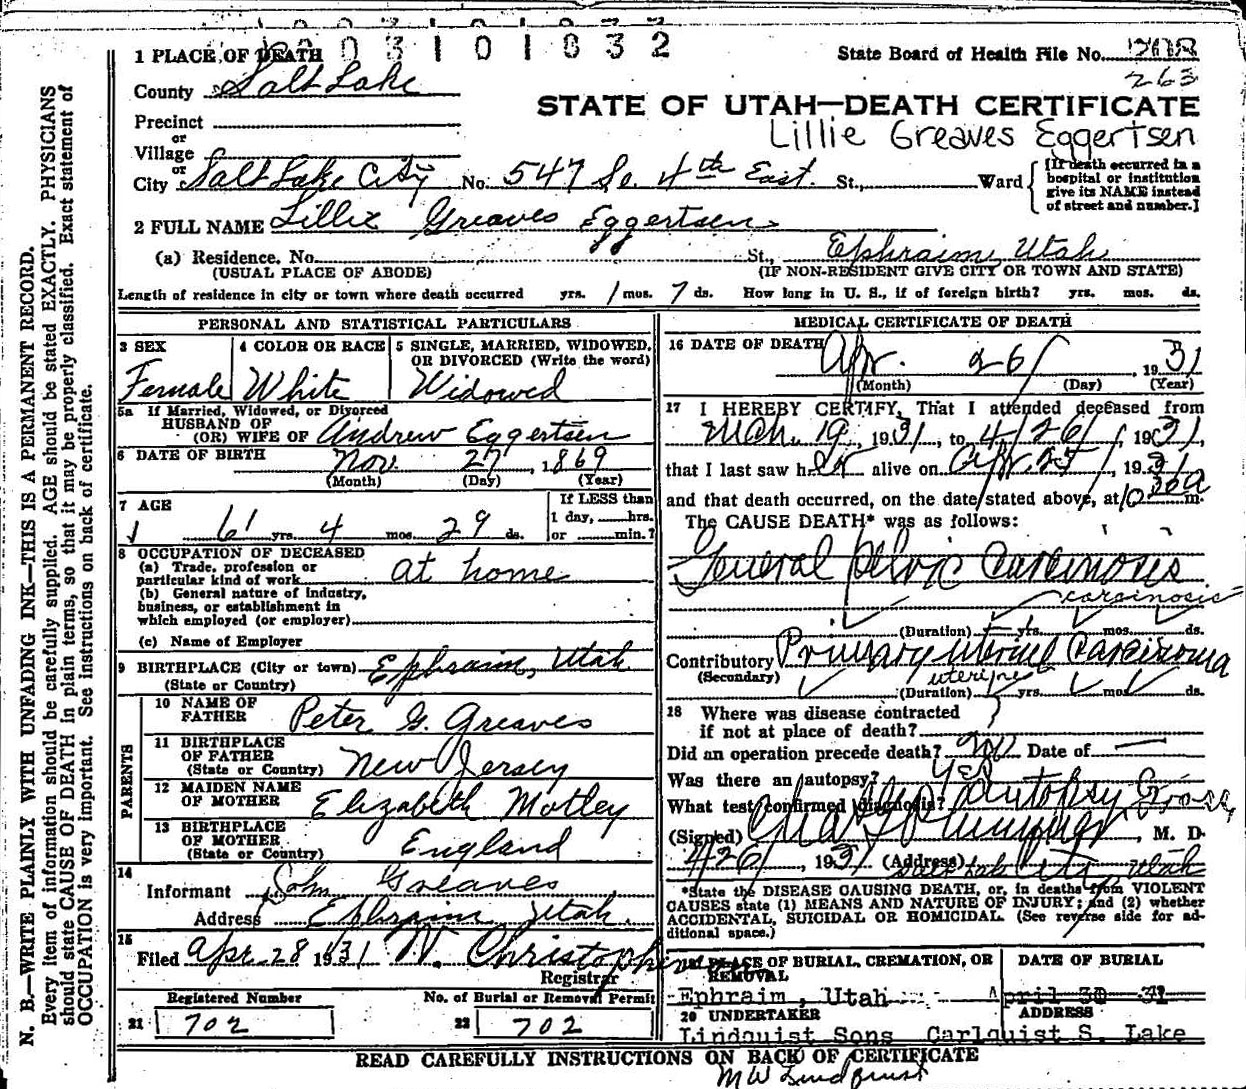 003101032
1 PLACE OF DEATH
State Board of Health File No.
263
County Salt Lake
STATE OF UTAH—DEATH CERTIFICATE
Precinct
Lillie Greaves Eggertsen
or
Village
or
City Salt Lake City No. 547 So. 4th East. St., Ward
[If death occurred in a hospital or institution give its NAME instead of street and number.]
2 FULL NAME Lillie Greaves Eggertsen
(a) Residence. No. St., Ephraim, Utah
(USUAL PLACE OF ABODE) (IF NON-RESIDENT GIVE CITY OR TOWN AND STATE)
Length of residence in city or town where death occurred yrs. 1 mos. 7 ds. How long in U. S., if of foreign birth? yrs. mos. ds.
PERSONAL AND STATISTICAL PARTICULARS
3 SEX 4 COLOR OR RACE 5 SINGLE, MARRIED, WIDOWED, OR DIVORCED (Write the word)
Female White Widowed
5a If Married, Widowed, or Divorced
HUSBAND OF
(OR) WIFE OF Andrew Eggertsen
6 DATE OF BIRTH Nov. 27, 1869
(Month) (Day) (Year)
7 AGE
If LESS than
1 day, hrs.
61 yrs. 4 mos. 29 ds. or min.?
8 OCCUPATION OF DECEASED
(a) Trade, profession or
particular kind of work at home
(b) General nature of Industry,
business, or establishment in
which employed (or employer)
(c) Name of Employer
9 BIRTHPLACE (City or town) Ephraim, Utah
(State or Country)
PARENTS
10 NAME OF
FATHER Peter G. Greaves
11 BIRTHPLACE
OF FATHER
(State or Country) New Jersey
12 MAIDEN NAME
OF MOTHER Elizabeth Motley
13 BIRTHPLACE
OF MOTHER
(State or Country) England
14
Informant John Greaves
Address Ephraim Utah.
15
Filed Apr 28 1931 W. Christopherson
Registrar
Registered Number No. of Burial or Removal Permit
21 702 22 702
MEDICAL CERTIFICATE OF DEATH
16 DATE OF DEATH Apr. 26 1931
(Month) (Day) (Year)
17 I HEREBY CERTIFY, That I attended deceased from
Mch. 19, 1931, to 4/26/, 1931,
that I last saw her alive on Apr. 25, 1931
and that death occurred, on the date stated above, at 10 30a m.
The CAUSE DEATH* was as follows:
General Pelvic Carcinosis
carcinosis
(Duration) yrs. mos. ds.
Contributory Primary uterine Carcinoma
(Secondary) uterine
(Duration) yrs. mos. ds.
18 Where was disease contracted
if not at place of death? ?
Did an operation precede death? no Date of —
Was there an autopsy? yes
What test confirmed diagnosis? Autopsy Gross
(Signed) M. D.
4/26/, 1931 (Address) Salt Lake City Utah
*State the DISEASE CAUSING DEATH, or, in deaths from VIOLENT
CAUSES state (1) MEANS AND NATURE OF INJURY; and (2) whether
ACCIDENTAL, SUICIDAL OR HOMICIDAL. (See reverse side for ad-
ditional space.)
19 PLACE OF BURIAL, CREMATION, OR REMOVAL DATE OF BURIAL
Ephraim, Utah April 30 31
20 UNDERTAKER ADDRESS
Lindquist Sons Carlquist S. Lake
READ CAREFULLY INSTRUCTIONS ON BACK OF CERTIFICATE
M W Lindquist
N. B.—WRITE PLAINLY WITH UNFADING INK—THIS IS A PERMANENT RECORD.
Every item of information should be carefully supplied. AGE should be stated EXACTLY. PHYSICIANS
should state CAUSE OF DEATH in plain terms, so that it may be properly classified. Exact statement of
OCCUPATION is very important. See instructions on back of certificate.